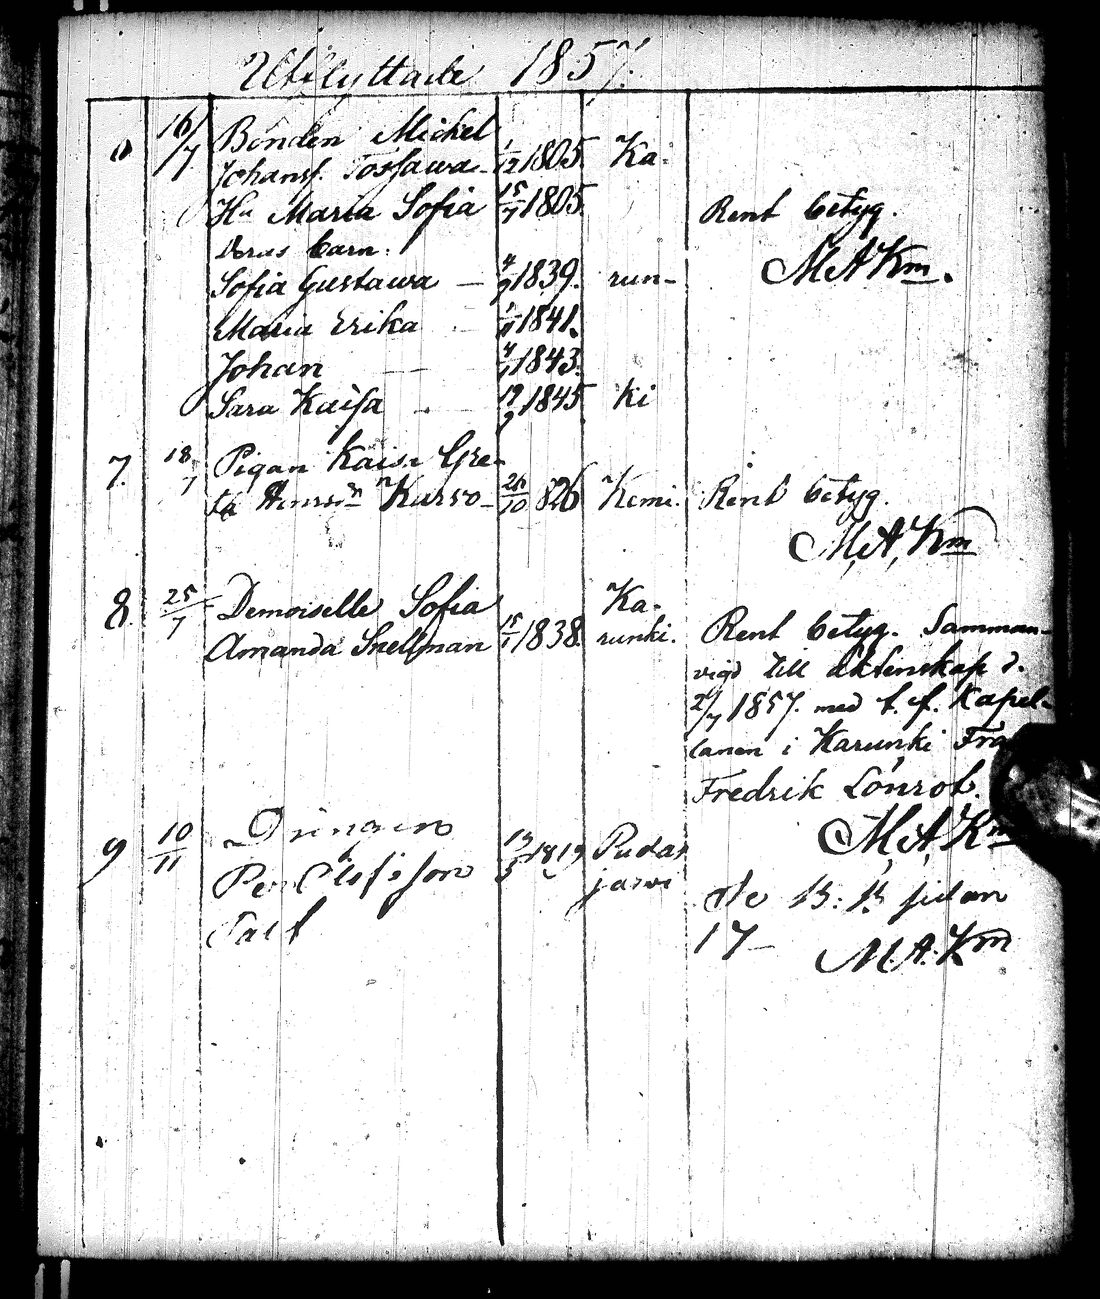 Utflyttade 1857.
6 16/7 Bonden Michel
Johanss. Tossawa 1/12 1805. Ka-
Hu Maria Sofia 15/7 1805 Rent betyg.
deras barn. M A Km.
Sofia Gustawa — 4/9 1839. run-
Maria Erika — 1/11 1841.
Johan — 4/1 1843.
Sara Kaisa — 19/9 1845 ki
7. 18/7 Pigan Kaisa Gre-
ta Kurso 26/10 826 Kemi. Rent betyg.
M, A, Km
8. 25/7 Demoiselle Sofia Ka-
Amanda Snellman 15/1 1838. runki. Rent betyg. Samman-
vigd till äktenskap d.
2/7 1857. med t. f. Kapel-
lanen i Karunki
Fredrik Lönrot.
M, A, Km
9 10/11 Drängen
Per Olofsson 1819 Pudas
jarwi
Se B: B sidan
17 — M. A. Km